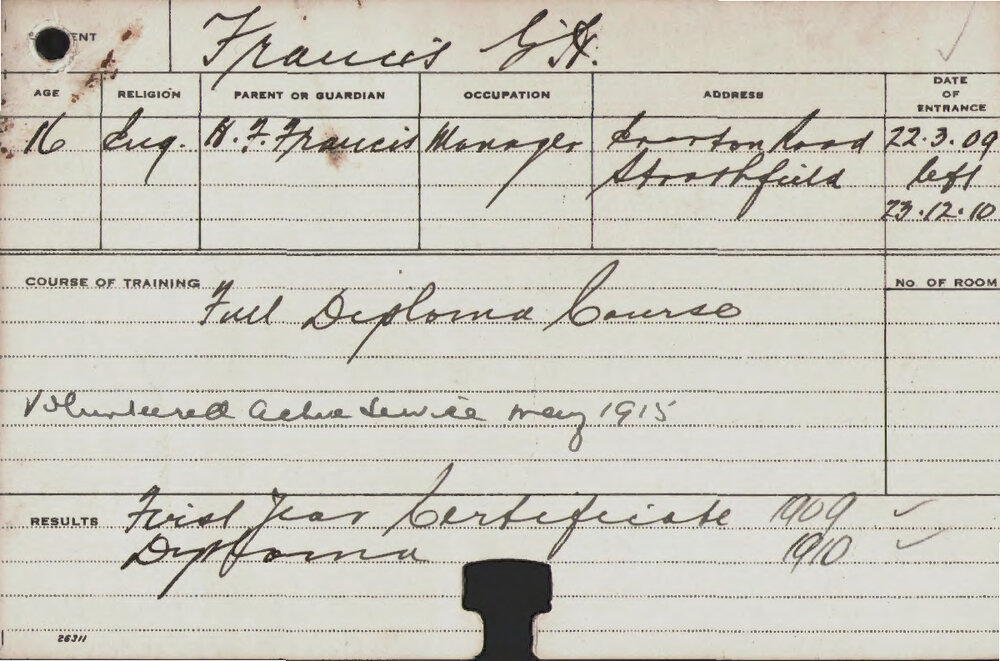 ENT
Francis G H.
AGE RELIGION PARENT OR GUARDIAN OCCUPATION ADDRESS DATE OF ENTRANCE
16 Eng. H. F. Francis Manager Everton Road 22.3.09
Strathfield left
23.12.10
COURSE OF TRAINING Full Diploma Course No. OF ROOM
Volunteered Active Service May 1915
RESULTS First Year Certificate 1909 ✓
Diploma 1910 ✓
26311